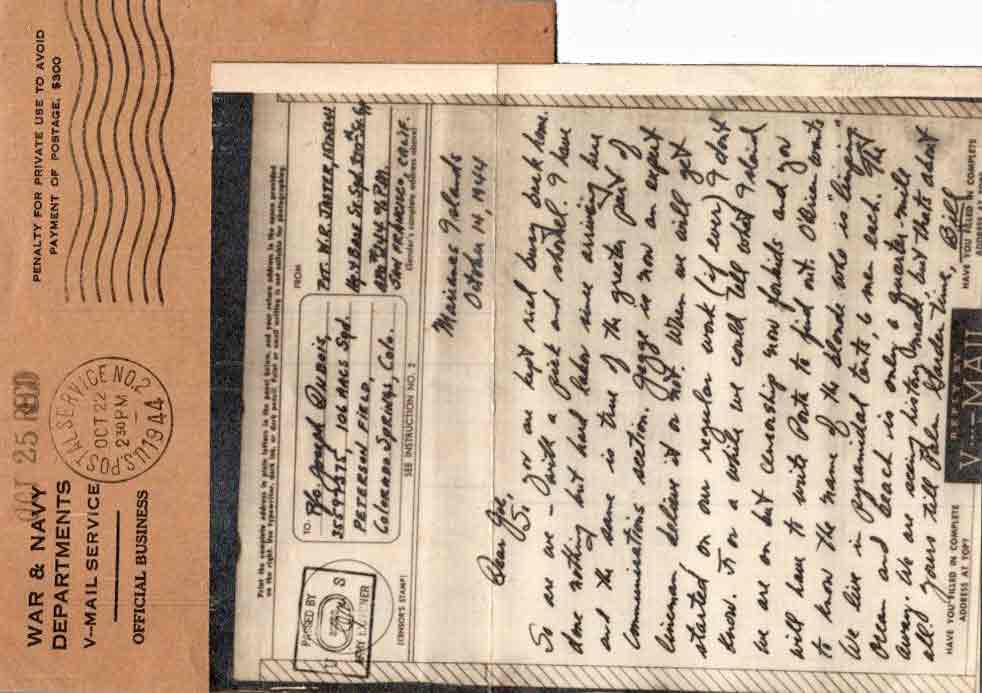 WAR & NAVY
DEPARTMENTS
V-MAIL SERVICE
OFFICIAL BUSINESS
OCT 25 RECD
U.S. POSTAL SERVICE NO. 2
OCT 22
2 30 PM
1944
PENALTY FOR PRIVATE USE TO AVOID
PAYMENT OF POSTAGE, $300
Print the complete address in plain letters in the panel below, and your return address in the space provided
on the right. Use typewriter, dark ink, or dark pencil. Faint or small writing is not suitable for photographing.
PASSED BY
ARMY EXAMINER
(CENSOR'S STAMP)
TO
Pfc. Joseph Dubois,
106 AACS Sqd.
PETERSON FIELD,
Colorado Springs, Colo.
SEE INSTRUCTION NO. 2
FROM
PVT. W.R. JASTER,
APO #244 % P.M.
SAN FRANCISCO, CALIF.
(Sender's complete address above)
Marianas Islands
October 14, 1944
Dear Joe,
So you are kept real busy back home.
So are we - with a pick and shovel. I have
done nothing but hard labor since arriving here
and the same is true of the greater part of
communications section. is now an expert
lineman believe it or not. When we will get
started on our regular work (if ever) I don't
know. For a while we could tell what island
we are on but censorship now forbids and you
will have to write to find out. O'Brien wants
to know the name of the blonde who is
We live in pyramidal tents, 6 men each. The
Ocean and beach is only a quarter-mile
away. We are seeing history made but that's about
all. Yours till Palm Garden time, Bill
HAVE YOU FILLED IN COMPLETE
ADDRESS AT TOP?
V-MAIL
HAVE YOU FILLED IN COMPLETE
ADDRESS AT TOP?